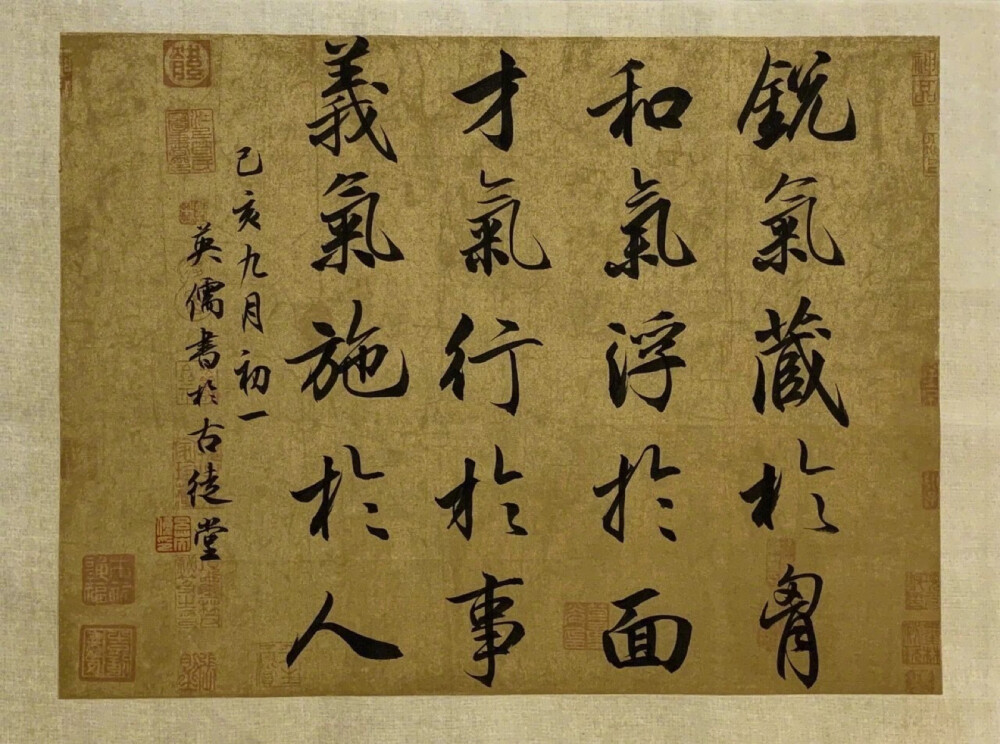 銳氣藏於胷
和氣浮於面
才氣行於事
義氣施於人
己亥九月初一
英儒書於古徒堂